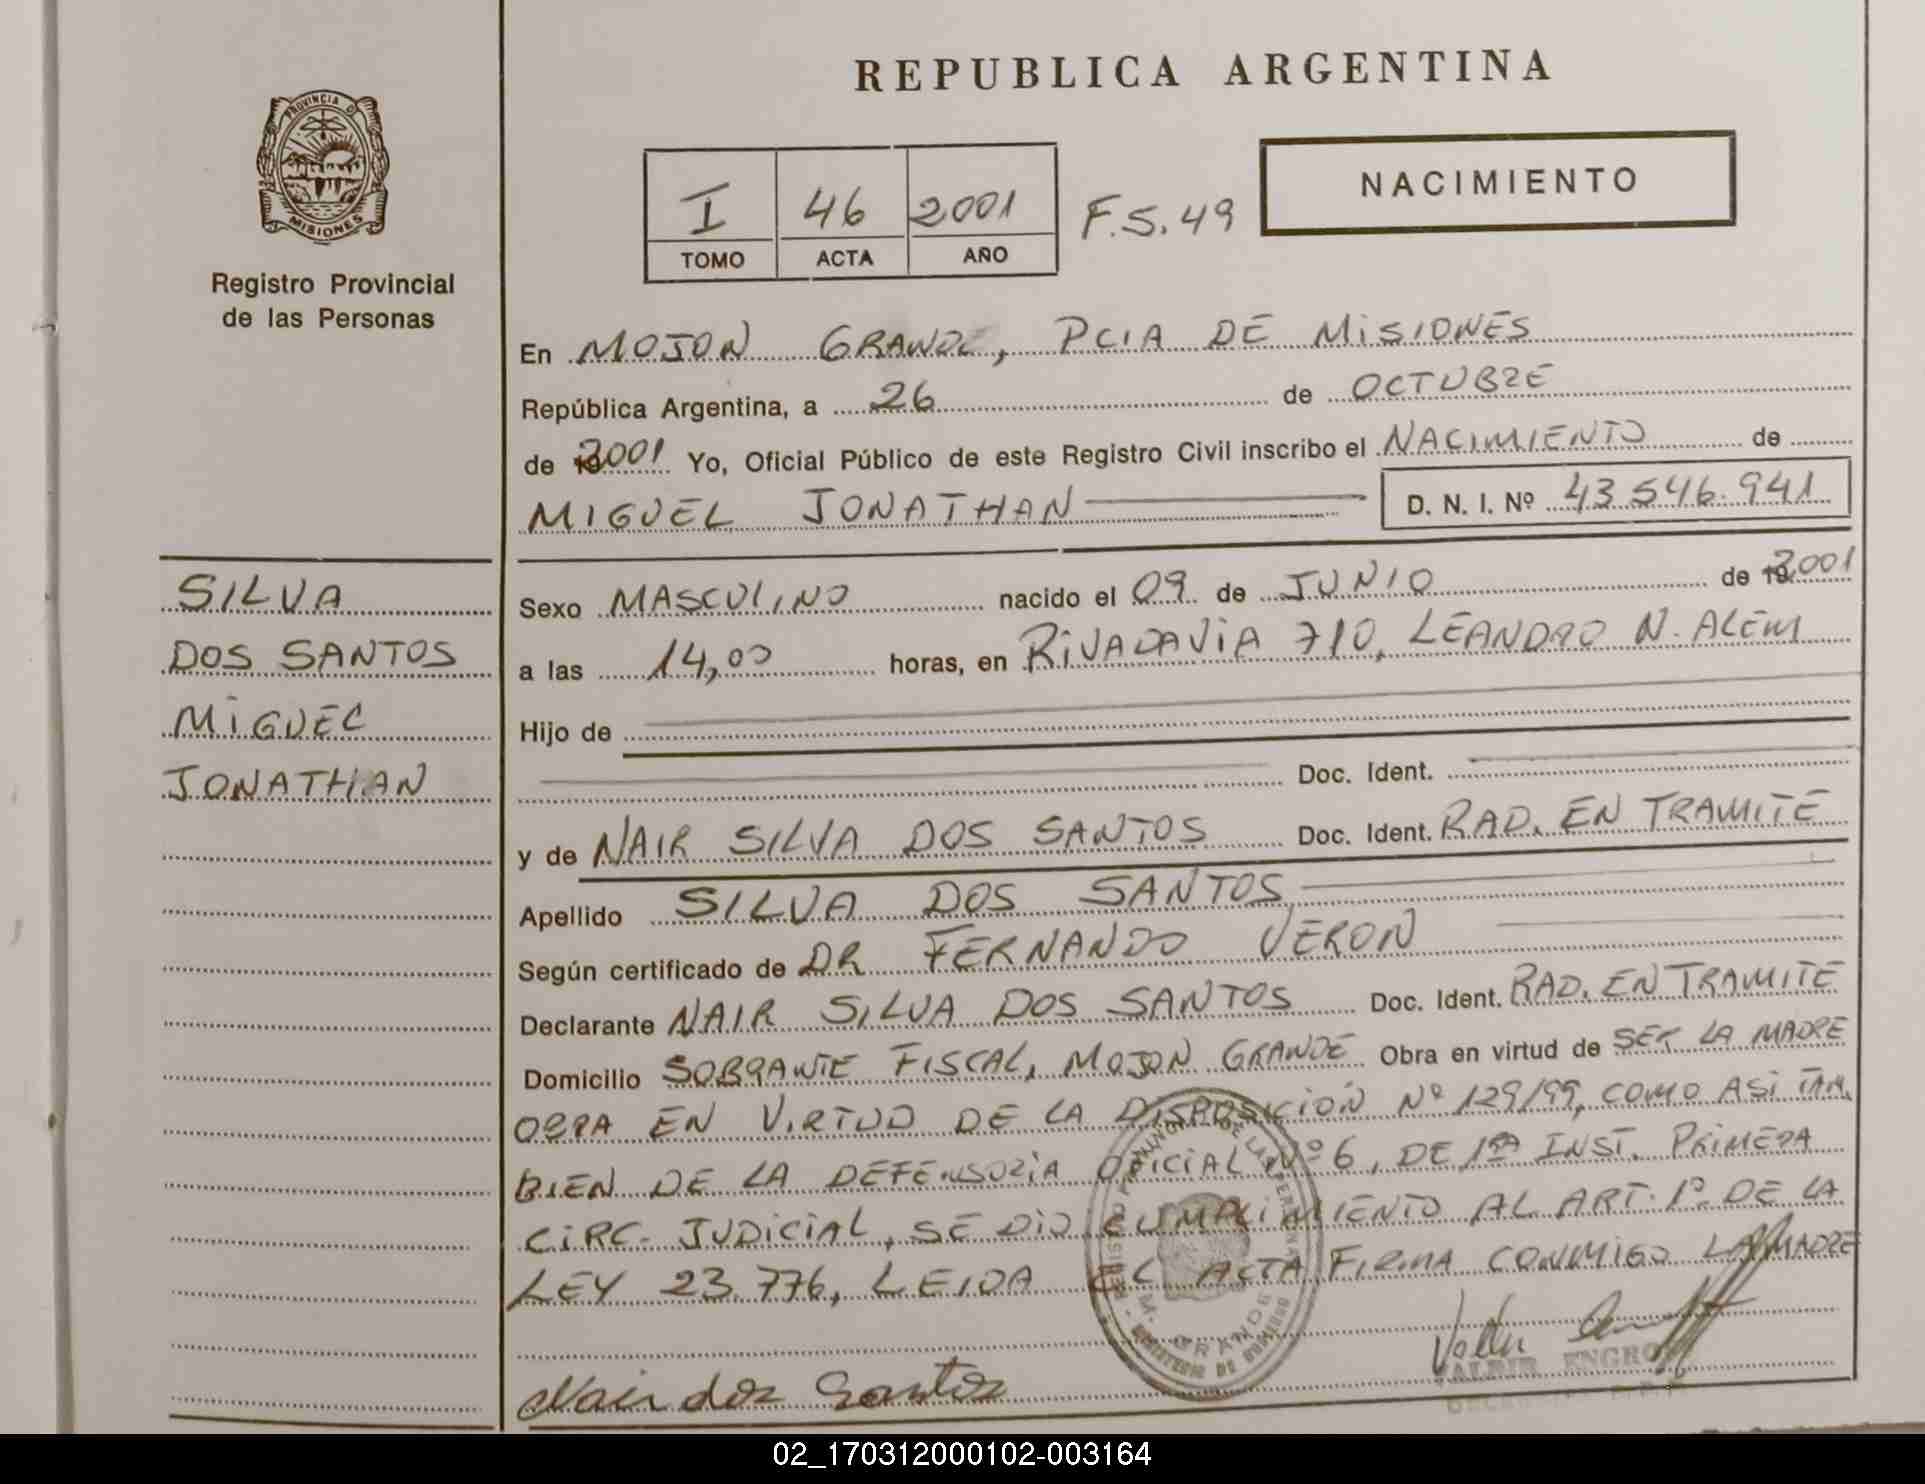 REPUBLICA ARGENTINA
PROVINCIA DE
MISIONES
Registro Provincial
de las Personas
I 46 2001 F.S.49
TOMO ACTA AÑO
NACIMIENTO
En MOJON GRANDE, PCIA DE MISIONES
República Argentina, a 26 de OCTUBRE
de 2001 Yo, Oficial Público de este Registro Civil inscribo el NACIMIENTO de
MIGUEL JONATHAN D. N. I. Nº 43.546.941
SILVA
DOS SANTOS
MIGUEL
JONATHAN
Sexo MASCULINO nacido el 09 de JUNIO de 2001
a las 14,00 horas, en RIVADAVIA 710, LEANDRO N. ALEM
Hijo de
Doc. Ident.
y de NAIR SILVA DOS SANTOS Doc. Ident. RAD. EN TRAMITE
Apellido SILVA DOS SANTOS
Según certificado de DR FERNANDO VERON
Declarante NAIR SILVA DOS SANTOS Doc. Ident. RAD. EN TRAMITE
Domicilio SOBRANTE FISCAL, MOJON GRANDE Obra en virtud de SER LA MADRE
OBRA EN VIRTUD DE LA DISPOSICIÓN Nº 129/99, COMO ASI TAM
BIEN DE LA DEFENSORIA OFICIAL Nº 6, DE 1RA INST. PRIMERA
CIRC. JUDICIAL, SE DIO CUMPLIMIENTO AL ART. 1º DE LA
LEY 23.776, LEIDA EL ACTA FIRMA CONMIGO LA MADRE
Nair dos Santos
02_170312000102-003164